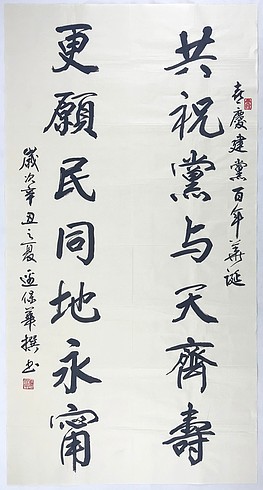 喜慶建黨百年華誕
共祝黨与天齊壽
更願民同地永甯
歲次辛丑之夏孟保華撰书